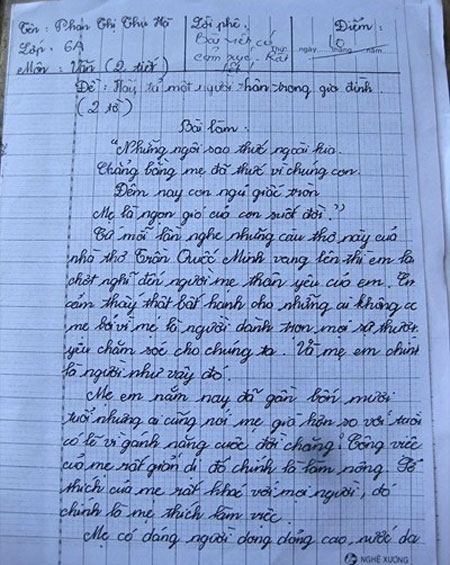 Tên: Phan Thị Thu Hà
Lớp: 6A
Môn: Văn (2 tiết)
Lời phê:
Bài viết có
cảm xúc. Rất
tốt!
Điểm:
Thứ ngày tháng năm
10
Đề: Hãy tả một người thân trong gia đình.
(2 tờ)
Bài làm:
"Những ngôi sao thức ngoài kia
Chẳng bằng mẹ đã thức vì chúng con.
Đêm nay con ngủ giấc tròn
Mẹ là ngọn gió của con suốt đời."
Cứ mỗi lần nghe những câu thơ này của
nhà thơ Trần Quốc Minh vang lên thì em lại
chợt nghĩ đến người mẹ thân yêu của em. Em
cảm thấy thật bất hạnh cho những ai không có
mẹ bởi vì mẹ là người dành trọn mọi sự thương
yêu chăm sóc cho chúng ta. Và mẹ em chính
là người như vậy đó.
Mẹ em năm nay đã gần bốn mươi
tuổi nhưng ai cũng nói mẹ già hơn so với tuổi
có lẽ vì gánh nặng cuộc đời chăng? Công việc
của mẹ rất giản dị đó chính là làm nông. Sở
thích của mẹ rất khác với mọi người, đó
chính là mẹ thích làm việc.
Mẹ có dáng người dong dỏng cao, nước da
NGHỆ XƯƠNG